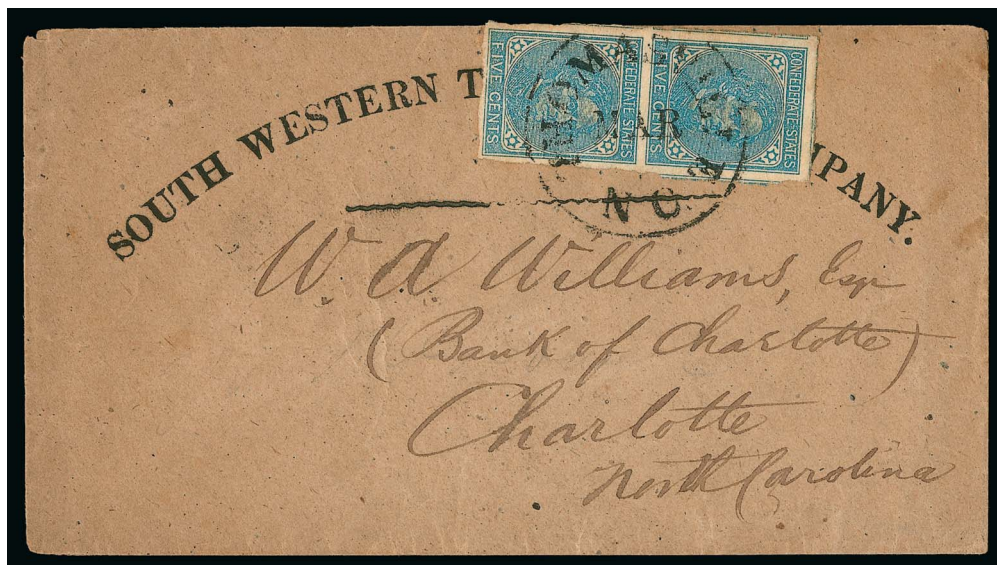 SOUTH WESTERN T MPANY.
FIVE CENTS CONFEDERATE STATES
FIVE CENTS CONFEDERATE STATES
THOMASVILLE
MAR
N C
W. A Williams, Esqr
(Bank of Charlotte)
Charlotte
North Carolina